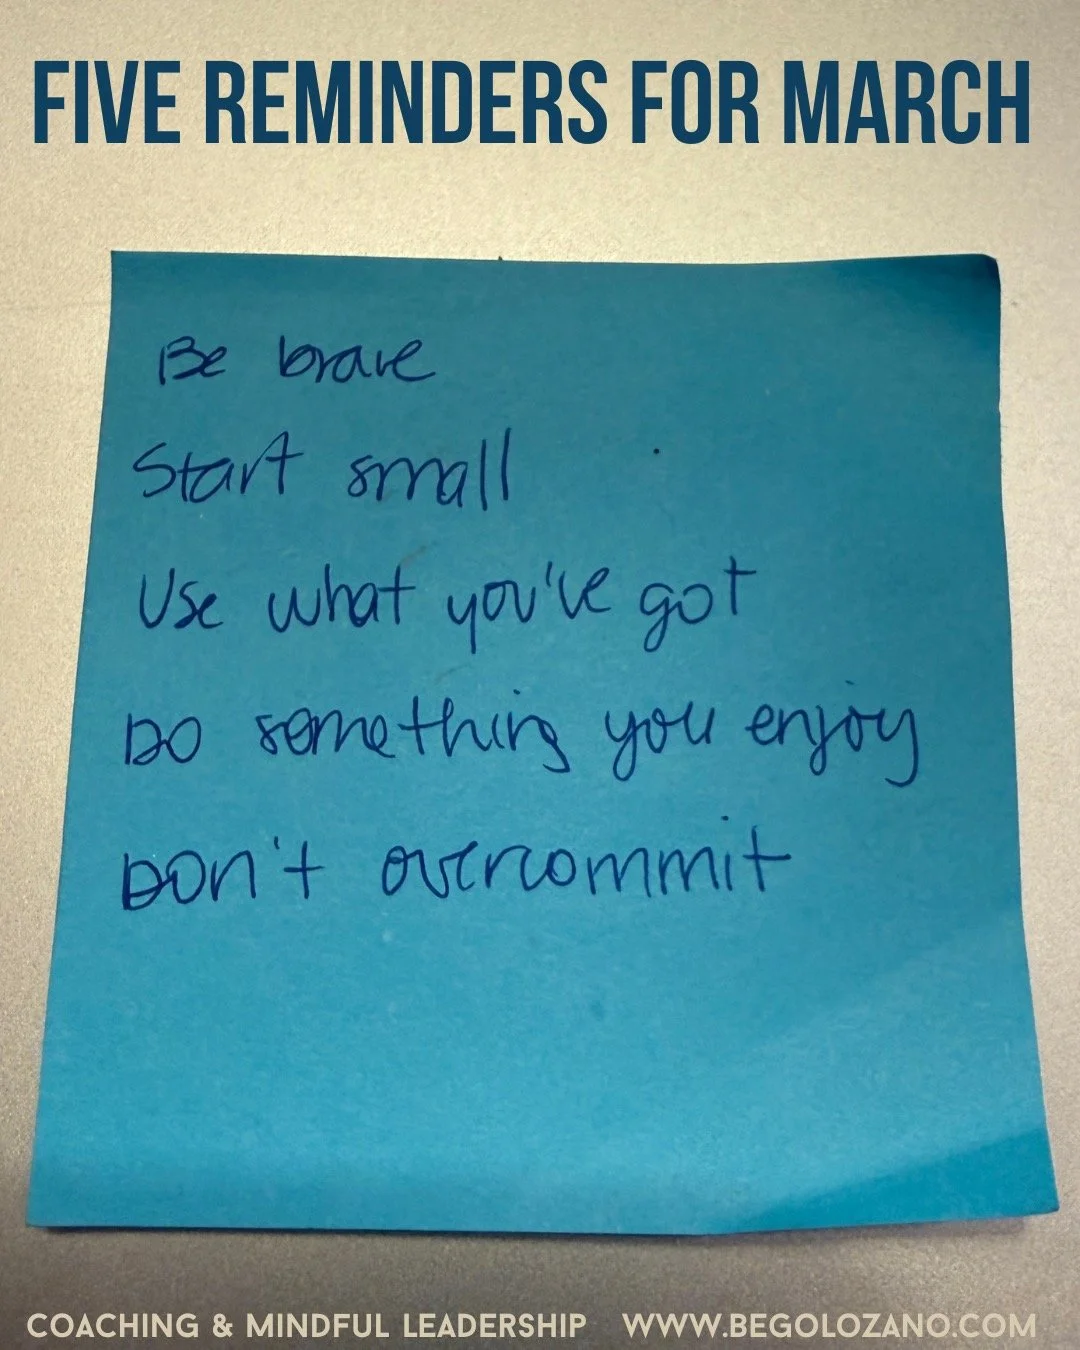 FIVE REMINDERS FOR MARCH
Be brave
Start small
Use what you've got
Do something you enjoy
Don't overcommit
COACHING & MINDFUL LEADERSHIP WWW.BEGOLOZANO.COM